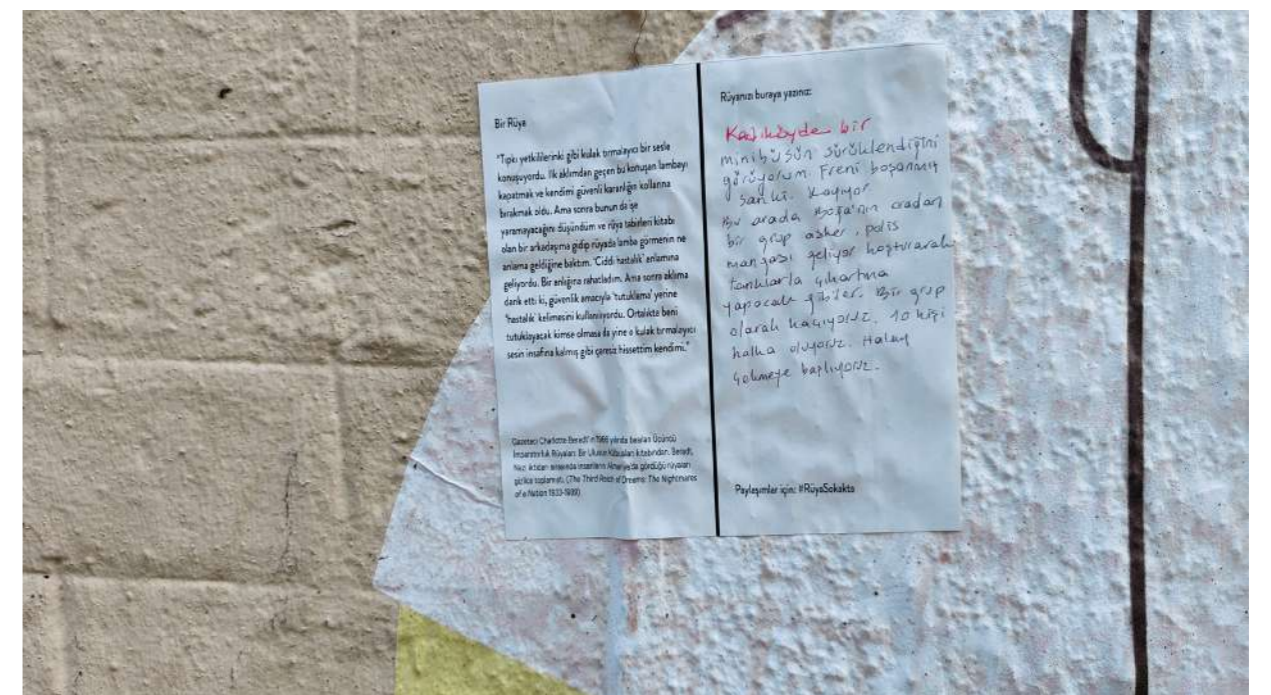 Bir Rüya
"Tıpkı yetkililerinki gibi kulak tırmalayıcı bir sesle
konuşuyordu. İlk aklımdan geçen bu konuşan lambayı
kapatmak ve kendimi güvenli karanlığın kollarına
bırakmak oldu. Ama sonra bunun da işe
yaramayacağını düşündüm ve rüya tabirleri kitabı
olan bir arkadaşıma gidip rüyada lamba görmenin ne
anlama geldiğine baktım. 'Ciddi hastalık' anlamına
geliyordu. Bir anlığına rahatladım. Ama sonra aklıma
dank etti ki, güvenlik amacıyla 'tutuklama' yerine
'hastalık' kelimesini kullanılıyordu. Ortalıkta beni
tutuklayacak kimse olmasa da yine o kulak tırmalayıcı
sesin insafına kalmış gibi çaresiz hissettim kendimi."
Gazeteci Charlotte Beradt'ın 1966 yılında basılan Üçüncü
İmparatorluk Rüyaları: Bir Ulusun Kabusları kitabından. Beradt,
Nazi iktidarı sırasında insanların Almanya'da gördüğü rüyaları
gizlice toplamıştı. (The Third Reich of Dreams: The Nightmares
of a Nation 1933-1939)
Rüyanızı buraya yazınız:
Kadıköyde bir
minibüsün sürüklendiğini
görüyorum. Freni boşanmış
sanki. Kayıyor
Bu arada Boğa'nın oradan
bir grup asker, polis
mangası geliyor koşturarak
tanklarla çıkartma
yapacak gibiler. Bir grup
olarak kaçıyoruz. 10 kişi
halka oluyoruz. Halay
çekmeye başlıyoruz.
Paylaşımlar için: #RüyaSokakta